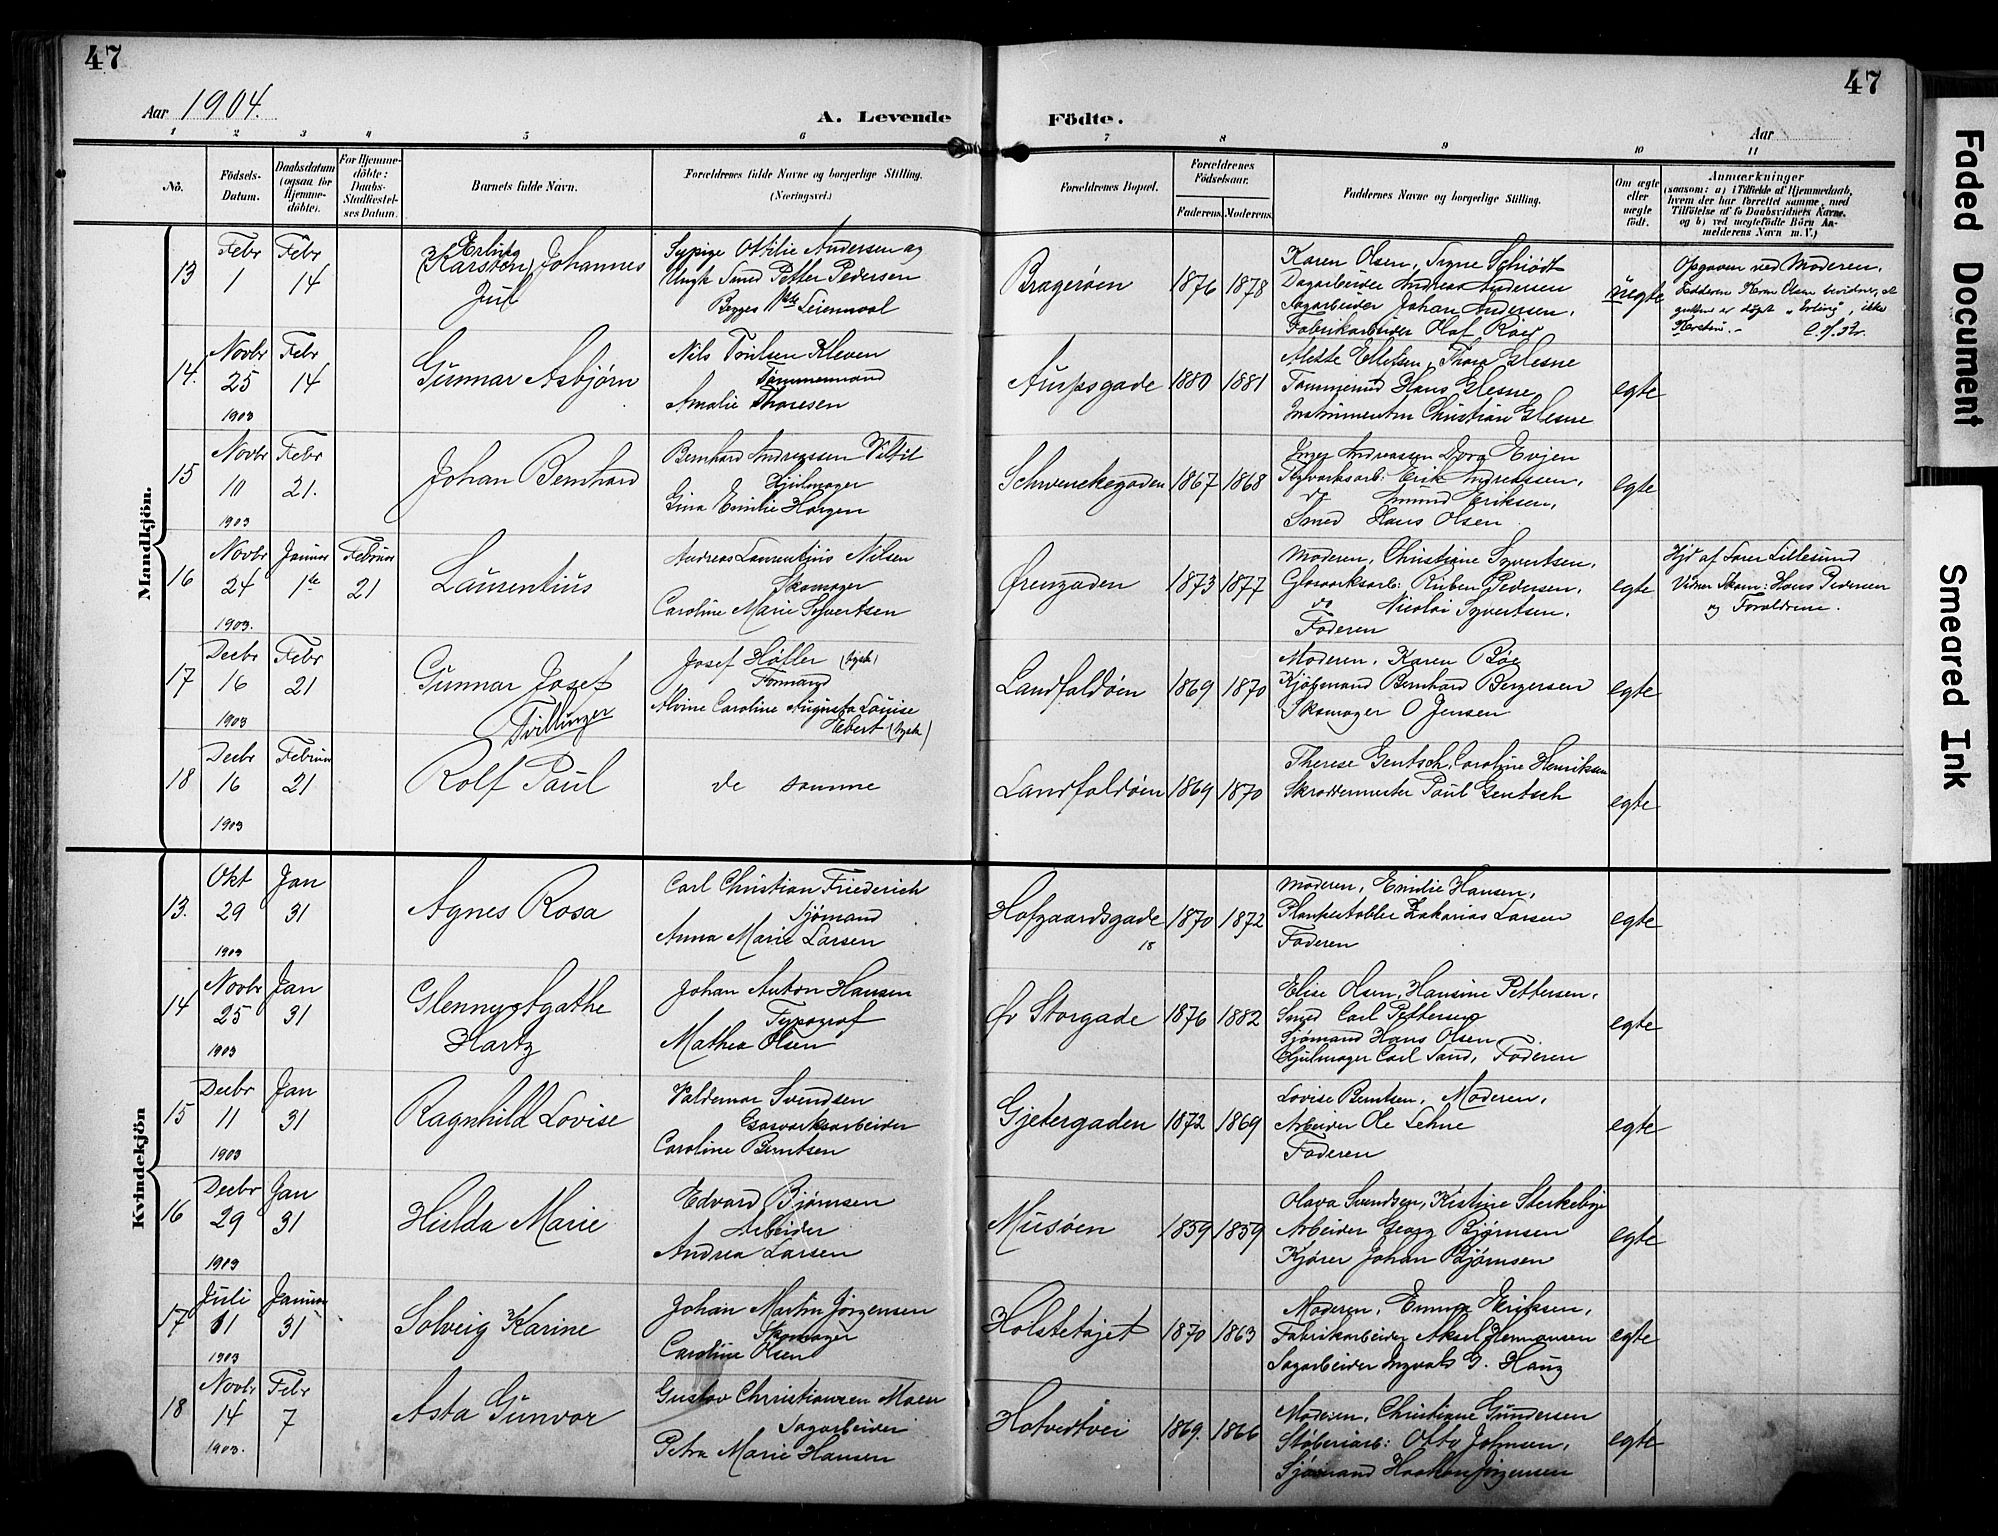 47
47
Aar 1904.
A. Levende Födte.
Aar
1 2 3 4 5 6 7 8 9 10 11
No.
Födsels-Datum.
Daabsdatum (ogsaa for Hjemmedöbte).
For Hjemmedöbte: Daabs-Stadfæstelses Datum.
Barnets fulde Navn.
Forældrenes fulde Navne og borgerlige Stilling. (Næringsvei.)
Forældrenes Bopæl.
Forældrenes Födselsaar.
Faderens. Moderens.
Faddernes Navne og borgerlige Stilling.
Om ægte eller uægte födt.
Anmærkninger
(saasom: a) i Tilfælde af Hjemmedaab, hvem der har forrettet samme, med Tilföielse af to Daabsvidners Navne, og b) ved uægtefödte Börn Anmelderens Navn m. V.)
Mandkjön.
13
Febr 1
Febr 14
Erling (Karsten) Johannes
Jul
Sypige Othilie Andersen og
Ungk Petter Pedersen
Begges 1ste Leiermaal
Bragerøen
1876 1878
Karen Olsen, Signe Schiødt
Dagarbeider Andreas Andersen
Sagarbeider Johan Andersen,
Fabrikarbeider Olaf Roer
uegte
Opgaven ved Moderen.
Fadderen Karen Olsen bevidner, at
gutten er døpt "Erling", ikke
Karsten. -
14.
Novbr 25 1903
Febr 14
Gunnar Asbjørn
Nils Kleven
Tømmermand
Amalie Thoresen
1880 1881
Mette Ellefsen, Thora Hesne
Tømmermd Hans Hesne
Instrumentm Christian Hesne
egte
15
Novbr 10 1903
Febr 21.
Johan Bernhard
Bernhard Andreassen
Hjulmager
Gina Emilie Horgen
Schwenckegaden
1867 1868
Inger Andreassen Dora Evjen
Erik Andreassen,
do Amund Eriksen,
Smed Hans Olsen
egte
16
Novbr 24 1903.
Januar 1te
Februar 21
Laurentius
Andreas Laurentius Nilsen
Skomager
Caroline Marie Syvertsen
Ørengaden
1873 1877
Moderen, Christiane Syvertsen,
Glasværksarb: Ruben Pedersen,
do Nicolai Syvertsen.
Faderen
egte
Hjd af Lillesund
Vidner Skom: Hans Pedersen
og Forældrene.
17
Decbr 16 1903
Febr 21
Gunnar Josef
Tvillinger
Josef Høller (tysk)
Formand
Alvine Caroline Augusta Louise
Ebert (tysk)
Landfaldøen
1869 1870
Moderen, Karen Bøe
Kjøbmand Bernhard Bergersen
Skomager O Jensen
egte
18
Decbr 16 1903
Februar 21
Rolf Paul
de samme
Landfaldøen
1869 1870
Therese Gentsch, Caroline Henriksen
Skræddermester Paul Gentsch
egte
Kvindekjön
13.
Okt 29 1903
Jan 31
Agnes Rosa
Carl Christian Friederich
Sjømand
Anna Marie Larsen
Hofgaardsgade
18
1870 1872
Moderen, Emilie Hansen,
Plankestabler Zakarias Larsen
Faderen
egte
14
Novbr 25 1903
Jan 31
Glenny Agathe
Hartz
Johan Anton Hansen
Typograf
Mathea Olsen
Øv Storgade
1876 1882
Elise Olsen, Hansine Pettersen.
Smed Carl Pettersen
Sjømand Hans Olsen
Hjulmager Carl Sand, Faderen
egte
15
Decbr 11 1903
Jan 31
Ragnhild Lovise
Valdemar Svendsen
Gasværksarbeider
Caroline Berntsen
Gjetergaden
1872 1869
Lovise Berntsen, Moderen,
Arbeider Ole Lehne
Faderen
egte
16
Decbr 29 1903
Jan 31
Hilda Marie
Edvard Bjørnsen
Arbeider
Andrea Larsen
Musøen
1859 1859
Olava Svendsen, Kristine
Arbeider Georg Bjørnsen
Kjører Johan Bjørnsen
egte
17
Juli 1903
Januar 31
Solveig Karine
Johan Martin Jørgensen
Skomager
Caroline Olsen
1870 1863
Moderen, Emma Eriksen,
Fabrikarbeider Aksel Hermansen
Sagarbeider Ingvald G. Haug
egte
18
Novbr 14 1903.
Febr 7
Asta Gunvor
Gustav Christiansen Moen
Sagarbeider
Petra Marie Hansen
Hotvedtvei
1869. 1866
Moderen, Christiane Gundersen
Støberiarb: Otto Johnsen,
Sjømand Haakon Jørgensen
egte
Faded Document
Smeared Ink